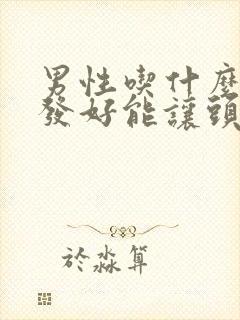 男性喫什麼
發好能讓頭
於淼算